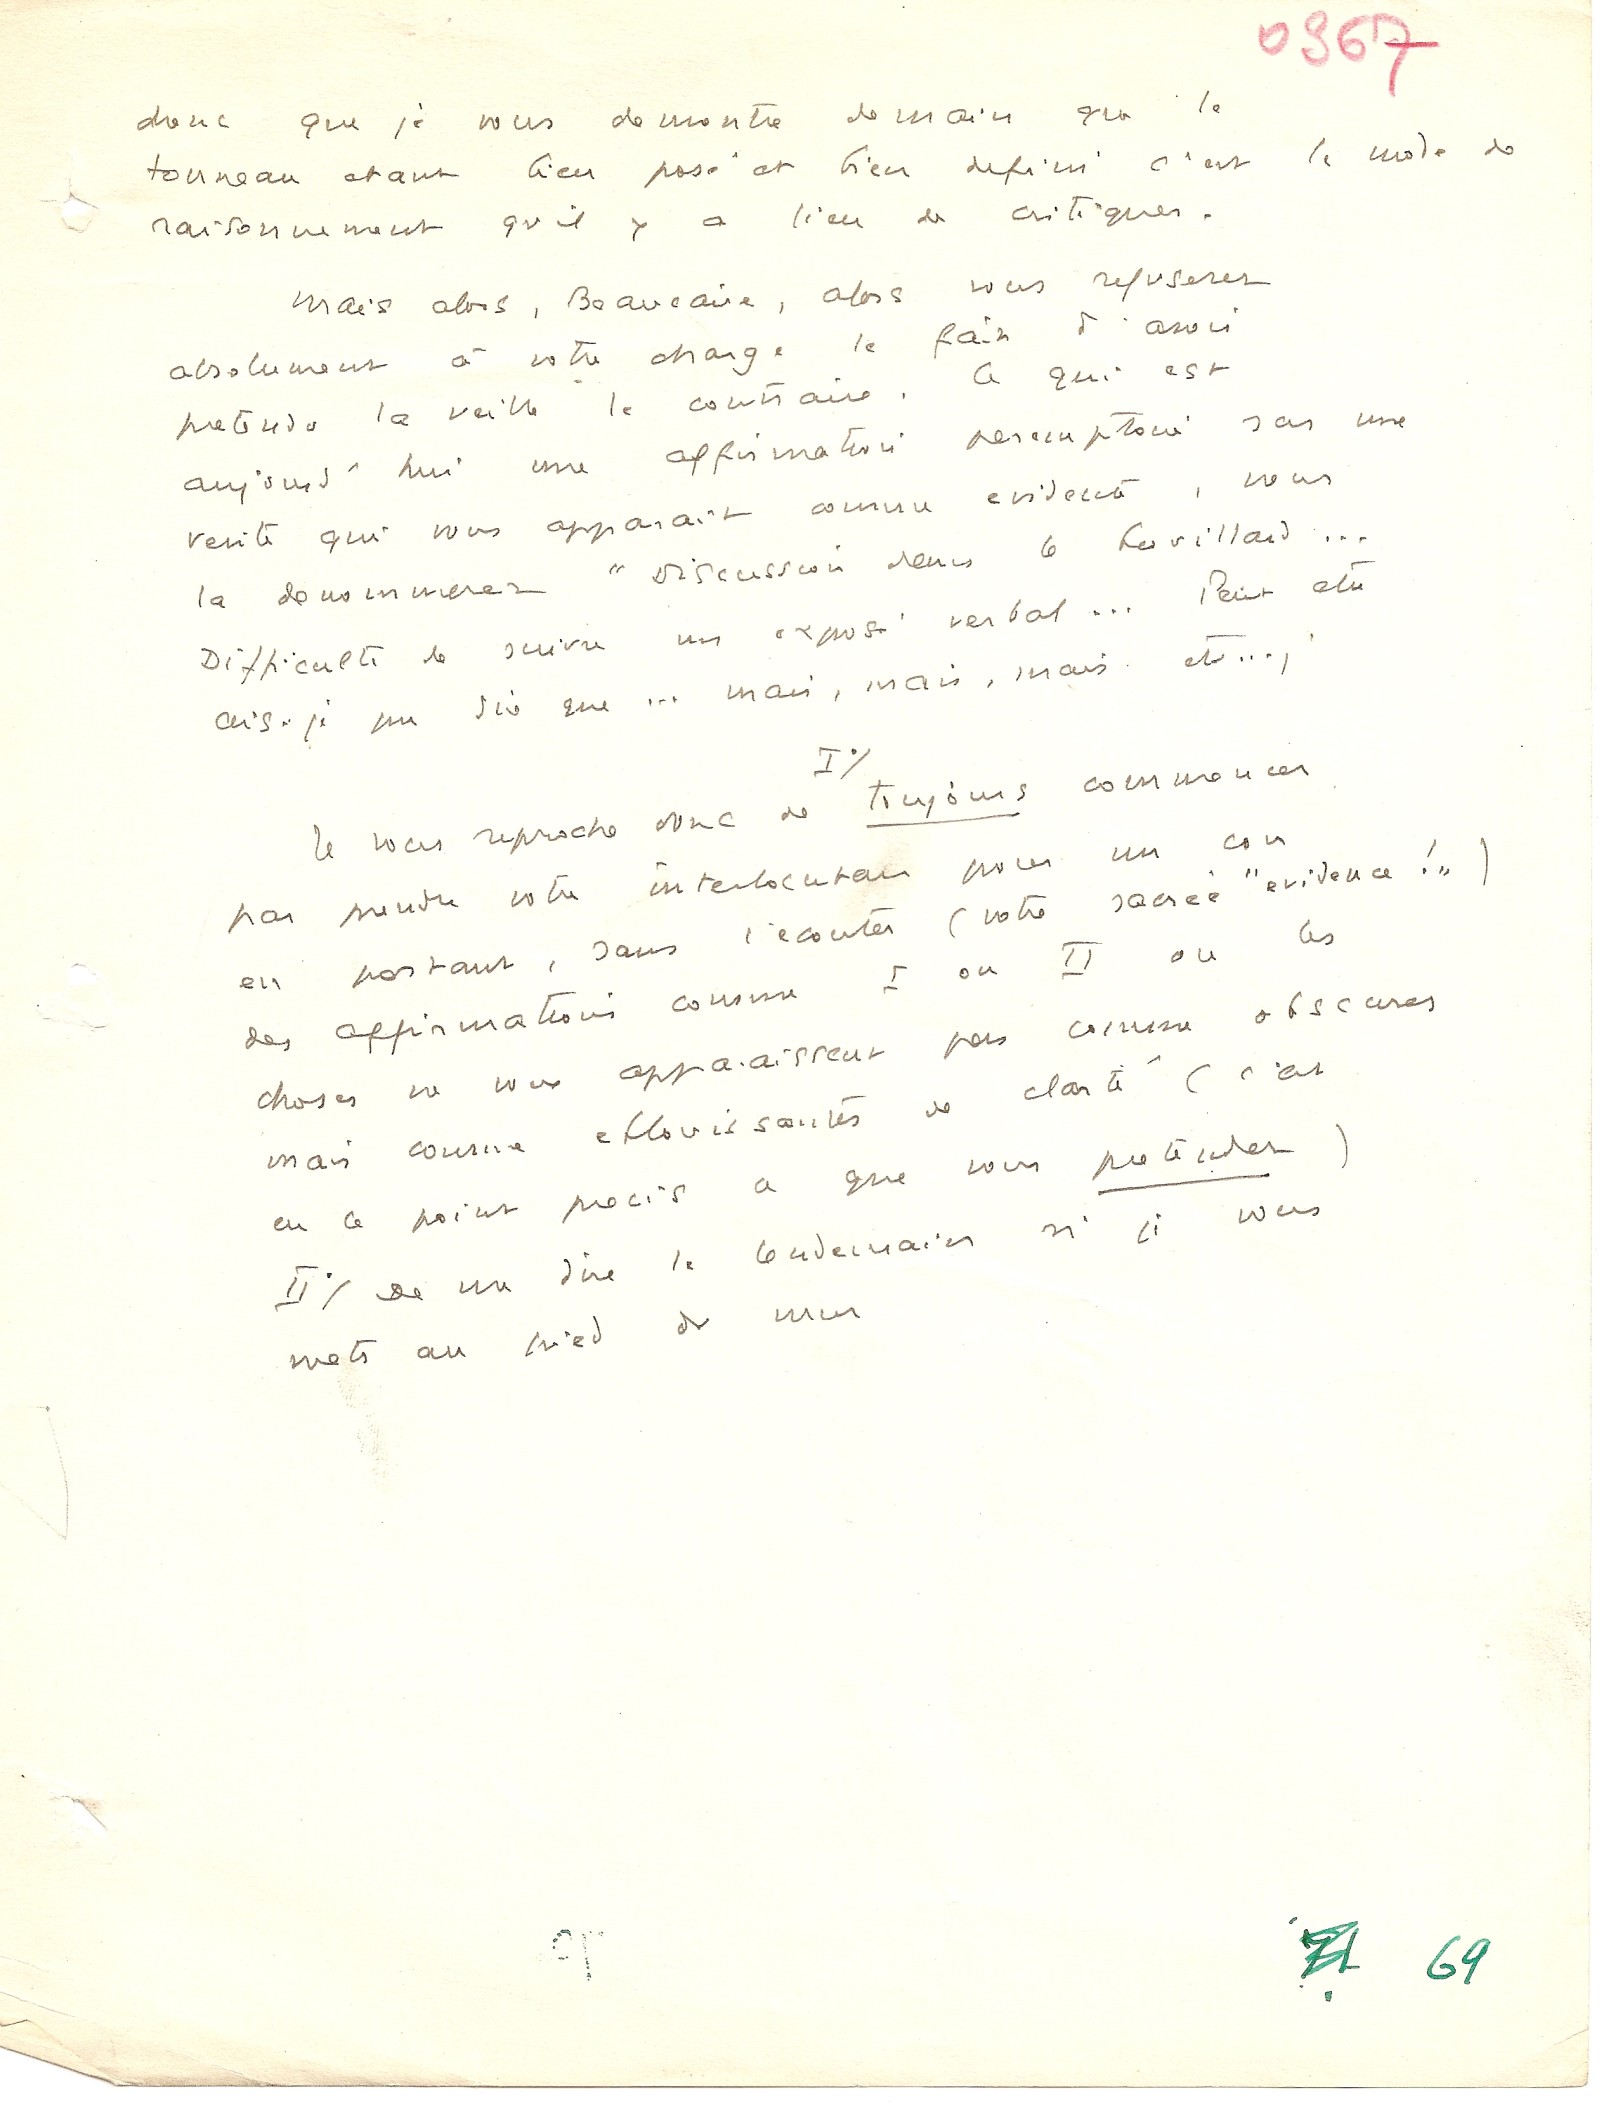 0967
donc que je vous demontre demain que le
tonneau etant bien posé et bien defini c'est le mode de
raisonnement qu'il y a lieu de critiquer.
Mais alors, Beaucaire, alors vous refuserez
absolument à votre charge le fait d'avoir
pretendu la veille le contraire. Ce qui est
aujourd'hui une affirmation peremptoire sur une
verité qui vous apparait comme evidente, vous
la denommerez "Discussion dans le brouillard...
Difficulté de suivre un exposé verbal... Peut etre
ais-je pu dire que... mais, mais, mais etc...,
I°/
Je vous reproche donc de toujours commencer
par prendre votre interlocuteur pour un con
en portant, sans l'ecouter (votre sacrée "evidence!")
des affirmations comme I ou II ou les
choses ne vous apparaissent pas comme obscures
mais comme eblouissantes de clarté (c'est
en ce point precis ce que vous pretendez)
II°/ De me dire le lendemain si je vous
mets au pied du mur
69